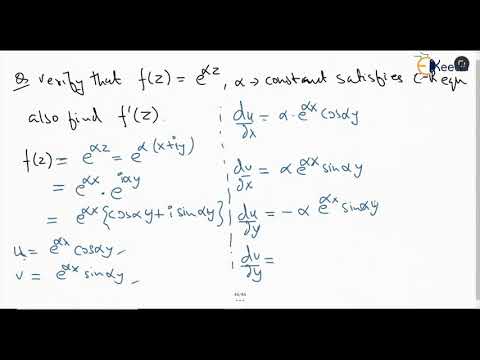 Q. verify that f(z) = e^{αz}, α → constant satisfies C-R equ
also find f'(z).
f(z) = e^{αz} = e^{α(x+iy)}
= e^{αx} · e^{iαy}
= e^{αx} {cosαy + i sinαy}
u = e^{αx} cosαy
v = e^{αx} sinαy
du/dx = α · e^{αx} cosαy
dv/dx = α e^{αx} sinαy
du/dy = -α e^{αx} sinαy
dv/dy =